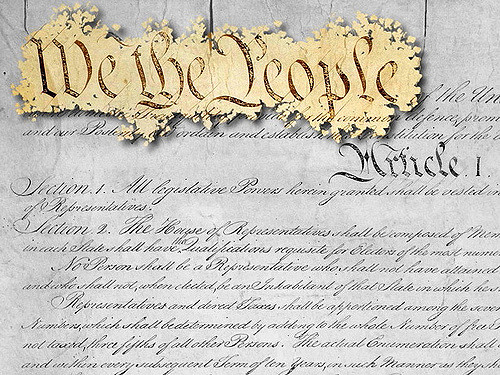 We the People
of the Un
common defence, prom
and our Poster ordain and establish for the
Article. I.
Section. 1. All legislative Powers herein granted shall be vested in
of Representatives.
Section. 2. The House of Representatives shall be composed of Mem
in each State shall have the Qualifications requisite for Electors of the most numer
No Person shall be a Representative who shall not have attained
and who shall not, when elected, be an Inhabitant of that State in which he s
Representatives and direct Taxes shall be apportioned among the seve
Numbers, which shall be determined by adding to the whole Number of free
not taxed, three fifths of all other Persons. The actual Enumeration shall
and within every subsequent Term of ten Years, in such Manner as they sh